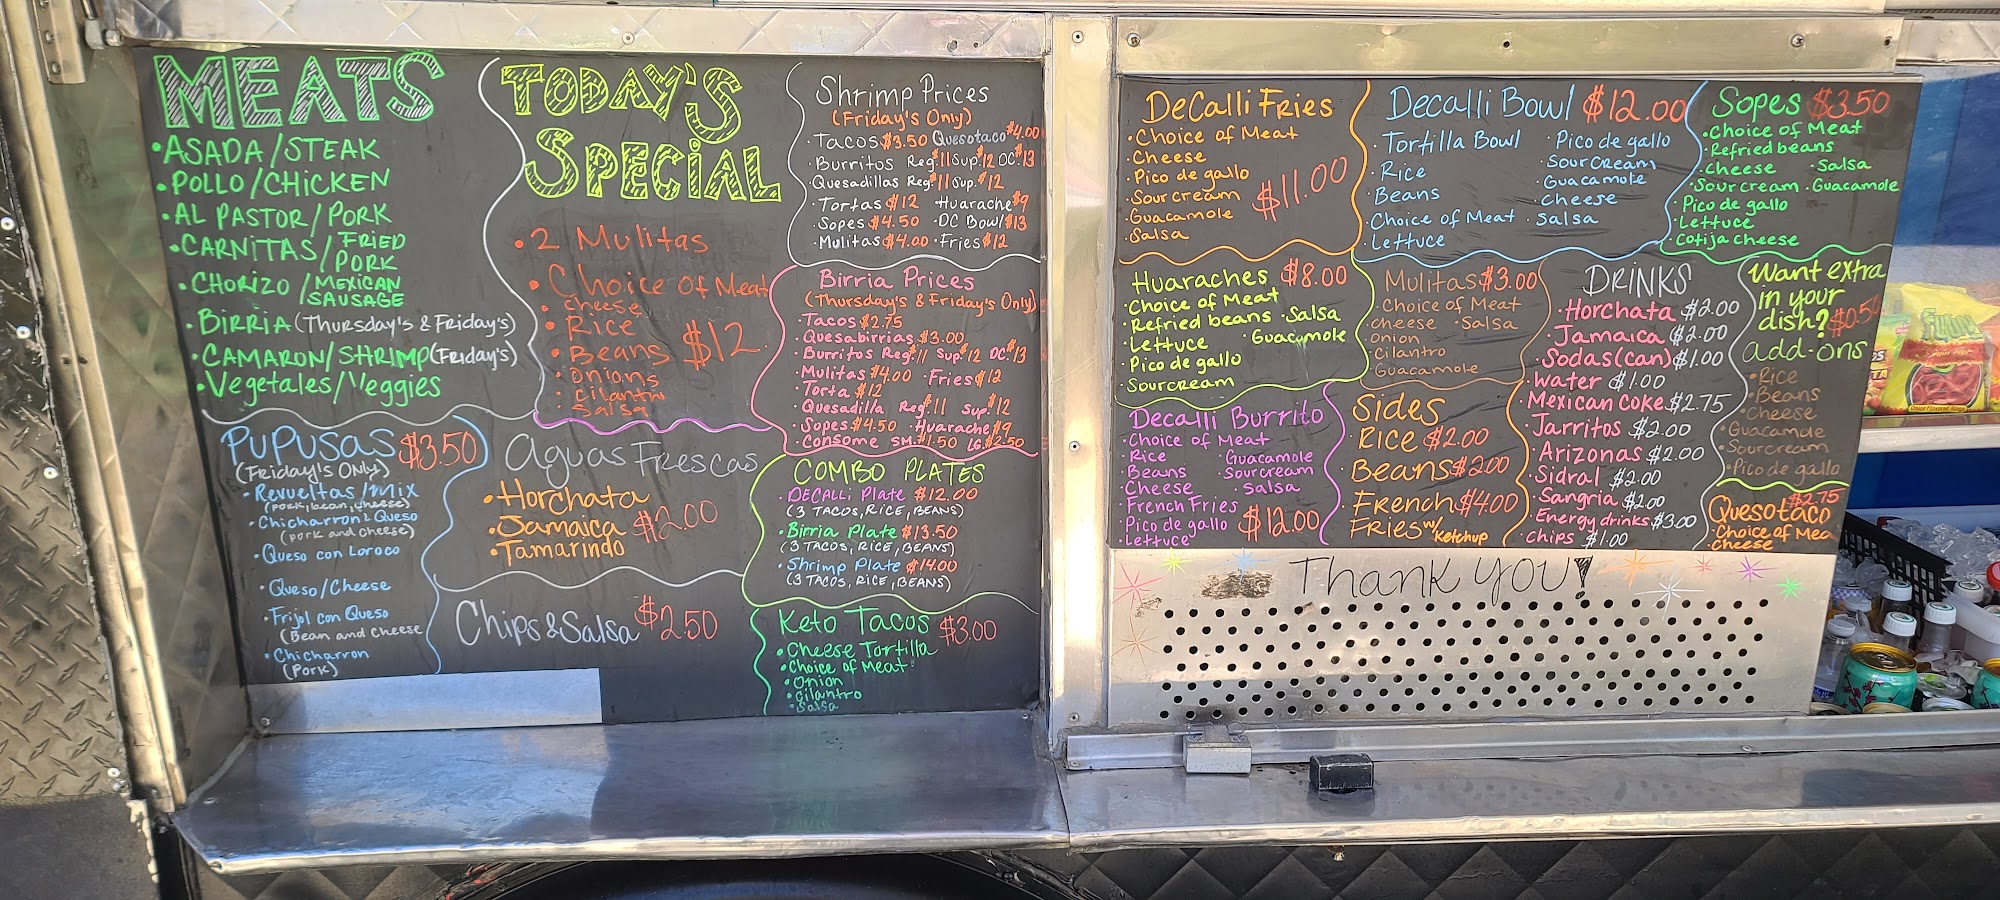 MEATS
• ASADA/STEAK
• POLLO/CHICKEN
• AL PASTOR/PORK
• CARNITAS/FRIED PORK
• CHORIZO/MEXICAN SAUSAGE
• BIRRIA (THURSDAY'S & FRIDAY'S)
• CAMARON/SHRIMP (FRIDAY'S)
• Vegetales/Veggies
PUPUSAS $3.50
(FRIDAY'S ONLY)
• Revueltas/mix
(PORK, bean, cheese)
• Chicharron & Queso
(pork and cheese)
• Queso con Loroco
• Queso/Cheese
• Frijol con Queso
(Bean and cheese
• Chicharron
(Pork)
TODAY'S
SPECIAL
• 2 Mulitas
• Choice of Meat
• cheese
• Rice
• Beans $12
• onions
• cilantro
• Salsa
Aguas Frescas
• Horchata
• Jamaica $2.00
• Tamarindo
Chips & Salsa $2.50
Shrimp Prices
(Friday's Only)
• Tacos $3.50 Quesotaco $4.00
• Burritos Reg. $11 Sup. $12 DC. $13
• Quesadillas Reg. $11 Sup. $12
• Tortas $12 Huarache $9
• Sopes $4.50 • DC Bowl $13
• Mulitas $4.00 • Fries $12
Birria Prices
(Thursday's & Friday's Only)
• Tacos $2.75
• Quesabirrias $3.00
• Burritos Reg. $11 Sup. $12 DC. $13
• Mulitas $4.00 • Fries $12
• Torta $12
• Quesadilla Reg. $11 Sup. $12
• Sopes $4.50 • Huarache $9
• Consome SM. $1.50 LG. $2.50
COMBO PLATES
• DECAlli Plate $12.00
(3 TACOS, RICE, BEANS)
• Birria Plate $13.50
(3 TACOS, RICE, BEANS)
• Shrimp Plate $14.00
(3 TACOS, RICE, BEANS)
Keto Tacos $3.00
• Cheese Tortilla
• Choice of Meat
• Onion
• Cilantro
• Salsa
DeCalli Fries
• Choice of Meat
• Cheese
• Pico de gallo
• Sour cream $11.00
• Guacamole
• Salsa
Decalli Bowl $12.00
• Tortilla Bowl • Pico de gallo
• Rice • Sour Cream
• Beans • Guacamole
• Cheese
• Choice of Meat • Salsa
• Lettuce
Sopes $3.50
• Choice of Meat
• Refried beans
• Cheese • Salsa
• Sour cream • Guacamole
• Pico de gallo
• Lettuce
• Cotija cheese
Huaraches $8.00
• Choice of Meat
• Refried beans • Salsa
• Lettuce • Guacamole
• Pico de gallo
• Sour cream
Mulitas $3.00
• Choice of Meat
• cheese • Salsa
• Onion
• Cilantro
• Guacamole
DRINKS
• Horchata $2.00
• Jamaica $2.00
• Sodas (can) $1.00
• Water $1.00
• Mexican Coke $2.75
• Jarritos $2.00
• Arizonas $2.00
• Sidral $2.00
• Sangria $2.00
• Energy drinks $3.00
• Chips $1.00
Want extra
in your
dish? $0.50
add-ons
• Rice
• Beans
• Cheese
• Guacamole
• Sour cream
• Pico de gallo
Decalli Burrito
• Choice of Meat
• Rice • Guacamole
• Beans • Sour cream
• Cheese • Salsa
• French Fries
• Pico de gallo $12.00
• Lettuce
Sides
• Rice $2.00
• Beans $2.00
• French $4.00
Fries w/ Ketchup
$2.75
Quesotaco
• Choice of Mea
• Cheese
Thank you!
Funyuns